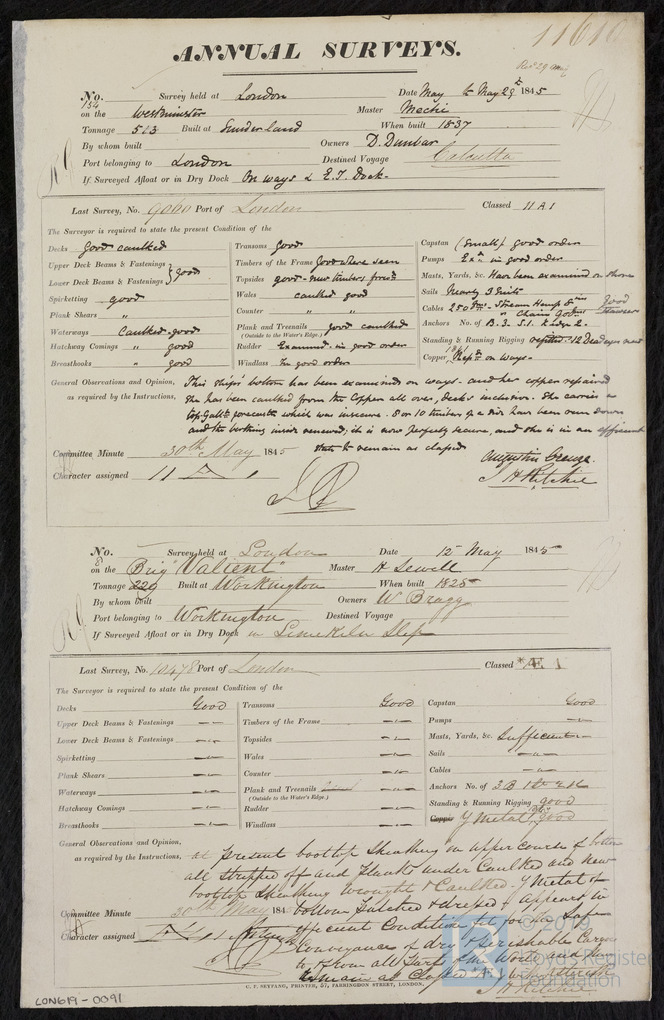 11610
ANNUAL SURVEYS.
No. 154 Survey held at London Date May to May 29th 1845
on the Westminster Master Mechi
Tonnage 503 Built at Sunderland When built 1837
By whom built Owners D. Dunbar
Port belonging to London Destined Voyage Calcutta
If Surveyed Afloat or in Dry Dock On ways & E.I. Dock.
Last Survey, No. 9060 Port of London Classed 11 A 1
The Surveyor is required to state the present Condition of the
Decks good caulked
Upper Deck Beams & Fastenings } good
Lower Deck Beams & Fastenings
Spirketting good
Plank Shears "
Waterways Caulked good
Hatchway Comings " good
Breasthooks " good
Transoms good
Timbers of the Frame good where seen
Topsides good - new timbers
Wales caulked good
Counter " "
Plank and Treenails good caulked
(Outside to the Water's Edge.)
Rudder Examined in good order
Windlass In good order
Capstan (Small) good order
Pumps in good order
Masts, Yards, &c. Have been examined on shore
Sails Nearly 3 Suits
Cables 250 Stream Hemp good
" Chain Hawser
Anchors No. of B. 3. S. 1. Kedge 2.
Standing & Running Rigging refitted 12 Dead eyes new
Copper, on ways.
General Observations and Opinion, This ships bottom has been examined on ways. and her copper repaired
as required by the Instructions, She has been caulked from the Copper all over, decks inclusive. She carries a
topGallt forecastle which was insecure. 8 or 10 timbers of a side have been run down
and the birthing inside renewed; it is now perfectly secure, and she is in an efficient
state to remain as classed
Augustin Creuze.
J H Ritchie
Committee Minute 30th May 1845
Character assigned 11 A 1
No. Survey held at London Date 12 May 1845
on the Brig "Valient" Master H Sewell
Tonnage 229 Built at Workington When built 1825
By whom built Owners W Bragg
Port belonging to Workington Destined Voyage
If Surveyed Afloat or in Dry Dock in Limekiln Slip
Last Survey, No. 10478 Port of London Classed *Æ 1
The Surveyor is required to state the present Condition of the
Decks Good
Upper Deck Beams & Fastenings —"—
Lower Deck Beams & Fastenings —"—
Spirketting —"—
Plank Shears —"—
Waterways —"—
Hatchway Comings —"—
Breasthooks —"—
Transoms Good
Timbers of the Frame —"—
Topsides —"—
Wales —"—
Counter —"—
Plank and Treenails —"—
(Outside to the Water's Edge.)
Rudder —"—
Windlass —"—
Capstan Good
Pumps —"—
Masts, Yards, &c. Sufficient
Sails —"—
Cables —"—
Anchors No. of 3 B 1 St 2 K
Standing & Running Rigging good
Copper Y Metal good
General Observations and Opinion,
as required by the Instructions, at present boottop Sheathing on upper course of bottom
all stripped off and Planks under Caulked and new
boottop Sheathing wrought & Caulked. Y Metal of
bottom Patched & dressed & appears in
efficient Condition fit for the Safe
Conveyance of dry & perishable Cargo
to & from all Parts of the World and to
remain as Classed
J H Ritchie
Committee Minute 30th May 1845
Character assigned Æ 1
C. F. SEYFANG, PRINTER, 57, FARRINGDON STREET, LONDON.
LON619-0091
© 2019
Lloyd's Register
Foundation